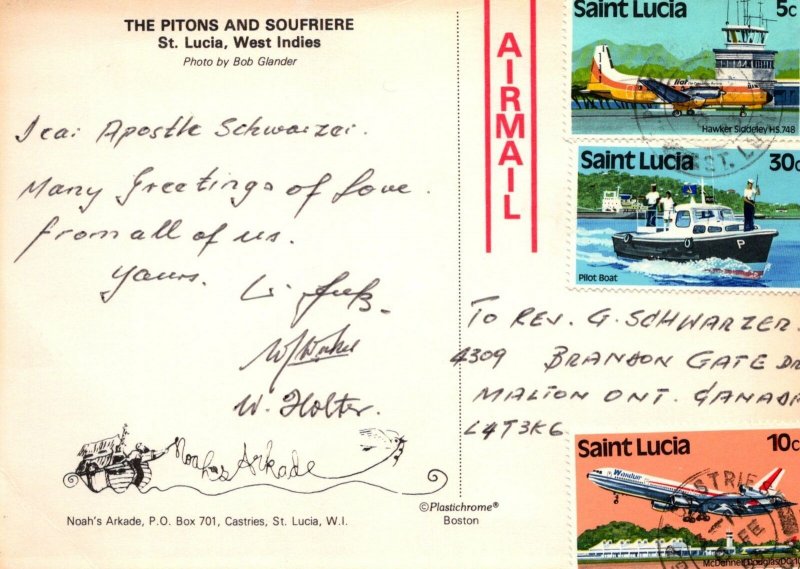 THE PITONS AND SOUFRIERE
St. Lucia, West Indies
Photo by Bob Glander
Dear Apostle Schwarzer.
Many Greetings of Love
from all of us.
Yours.
W. Holter.
Noah's Arkade
Noah's Arkade, P.O. Box 701, Castries, St. Lucia, W.I.
©Plastichrome®
Boston
AIRMAIL
Saint Lucia 5c
liat
Hawker Siddeley HS.748
ST. LUC
Saint Lucia 30c
P
Pilot Boat
TO REV. G. SCHWARZER.
4309 BRANDON GATE DR
MALTON ONT. CANADA
L4T3K6
Saint Lucia 10c
Wardair
STRIE
McDonnell Douglas DC-10